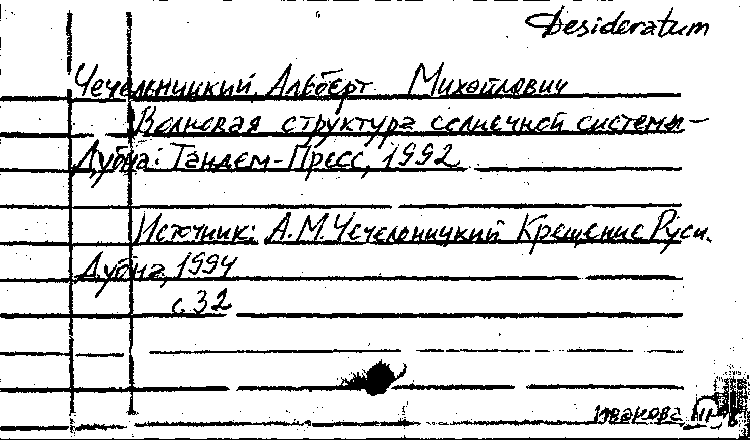 Desideratum
Чечельницкий, Альберт Михайлович
Волновая структура солнечной системы -
Дубна: Тандем-Пресс, 1992
Источник: А.М. Чечельницкий Крещение Руси.
Дубна, 1994
с. 32
Иванова